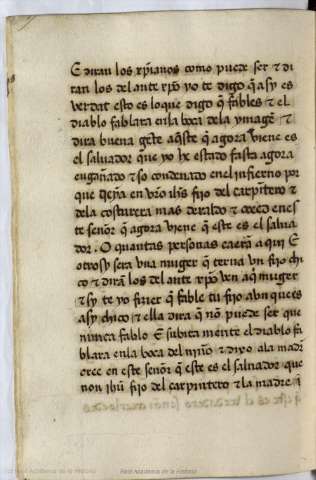 E diran los xp̄ianos como puede ser & di
ran los del ante xp̄o yo te digo q̄ asy es
verdat esto es lo que digo q̄ fables & el
diablo fablara en la boca dela ymagẽ &
dira buena gẽte aq̄ste q̄ agora viene es
el saluador que yo he estado fasta agora
engañado & so condenado en el infierno por
que creya en vr̃o ih̃s fijo del carpĩtero &
dela costurera mas dexaldo & creed en es
te señor q̄ agora viene q̄ este es el salua
dor. O quantas personas caerã aqui E
otrosy sera vna muger q̄ terna vn fijo chi
co & dirã los del ante xp̄o ven acq̃ muger
& sy te yo fizier q̄ fable tu fijo avn que es
asy chico & ella dira q̄ nõ puede ser que
nunca fablo E subita mente el diablo fa
blara en la boca del niño & dixo ala madr̃
cree en este señor q̄ este es el saluador que
non ih̃u fijo del carpintero & la madre q̄
q̄ este es el verdadero señor
Real Academia de la Historia